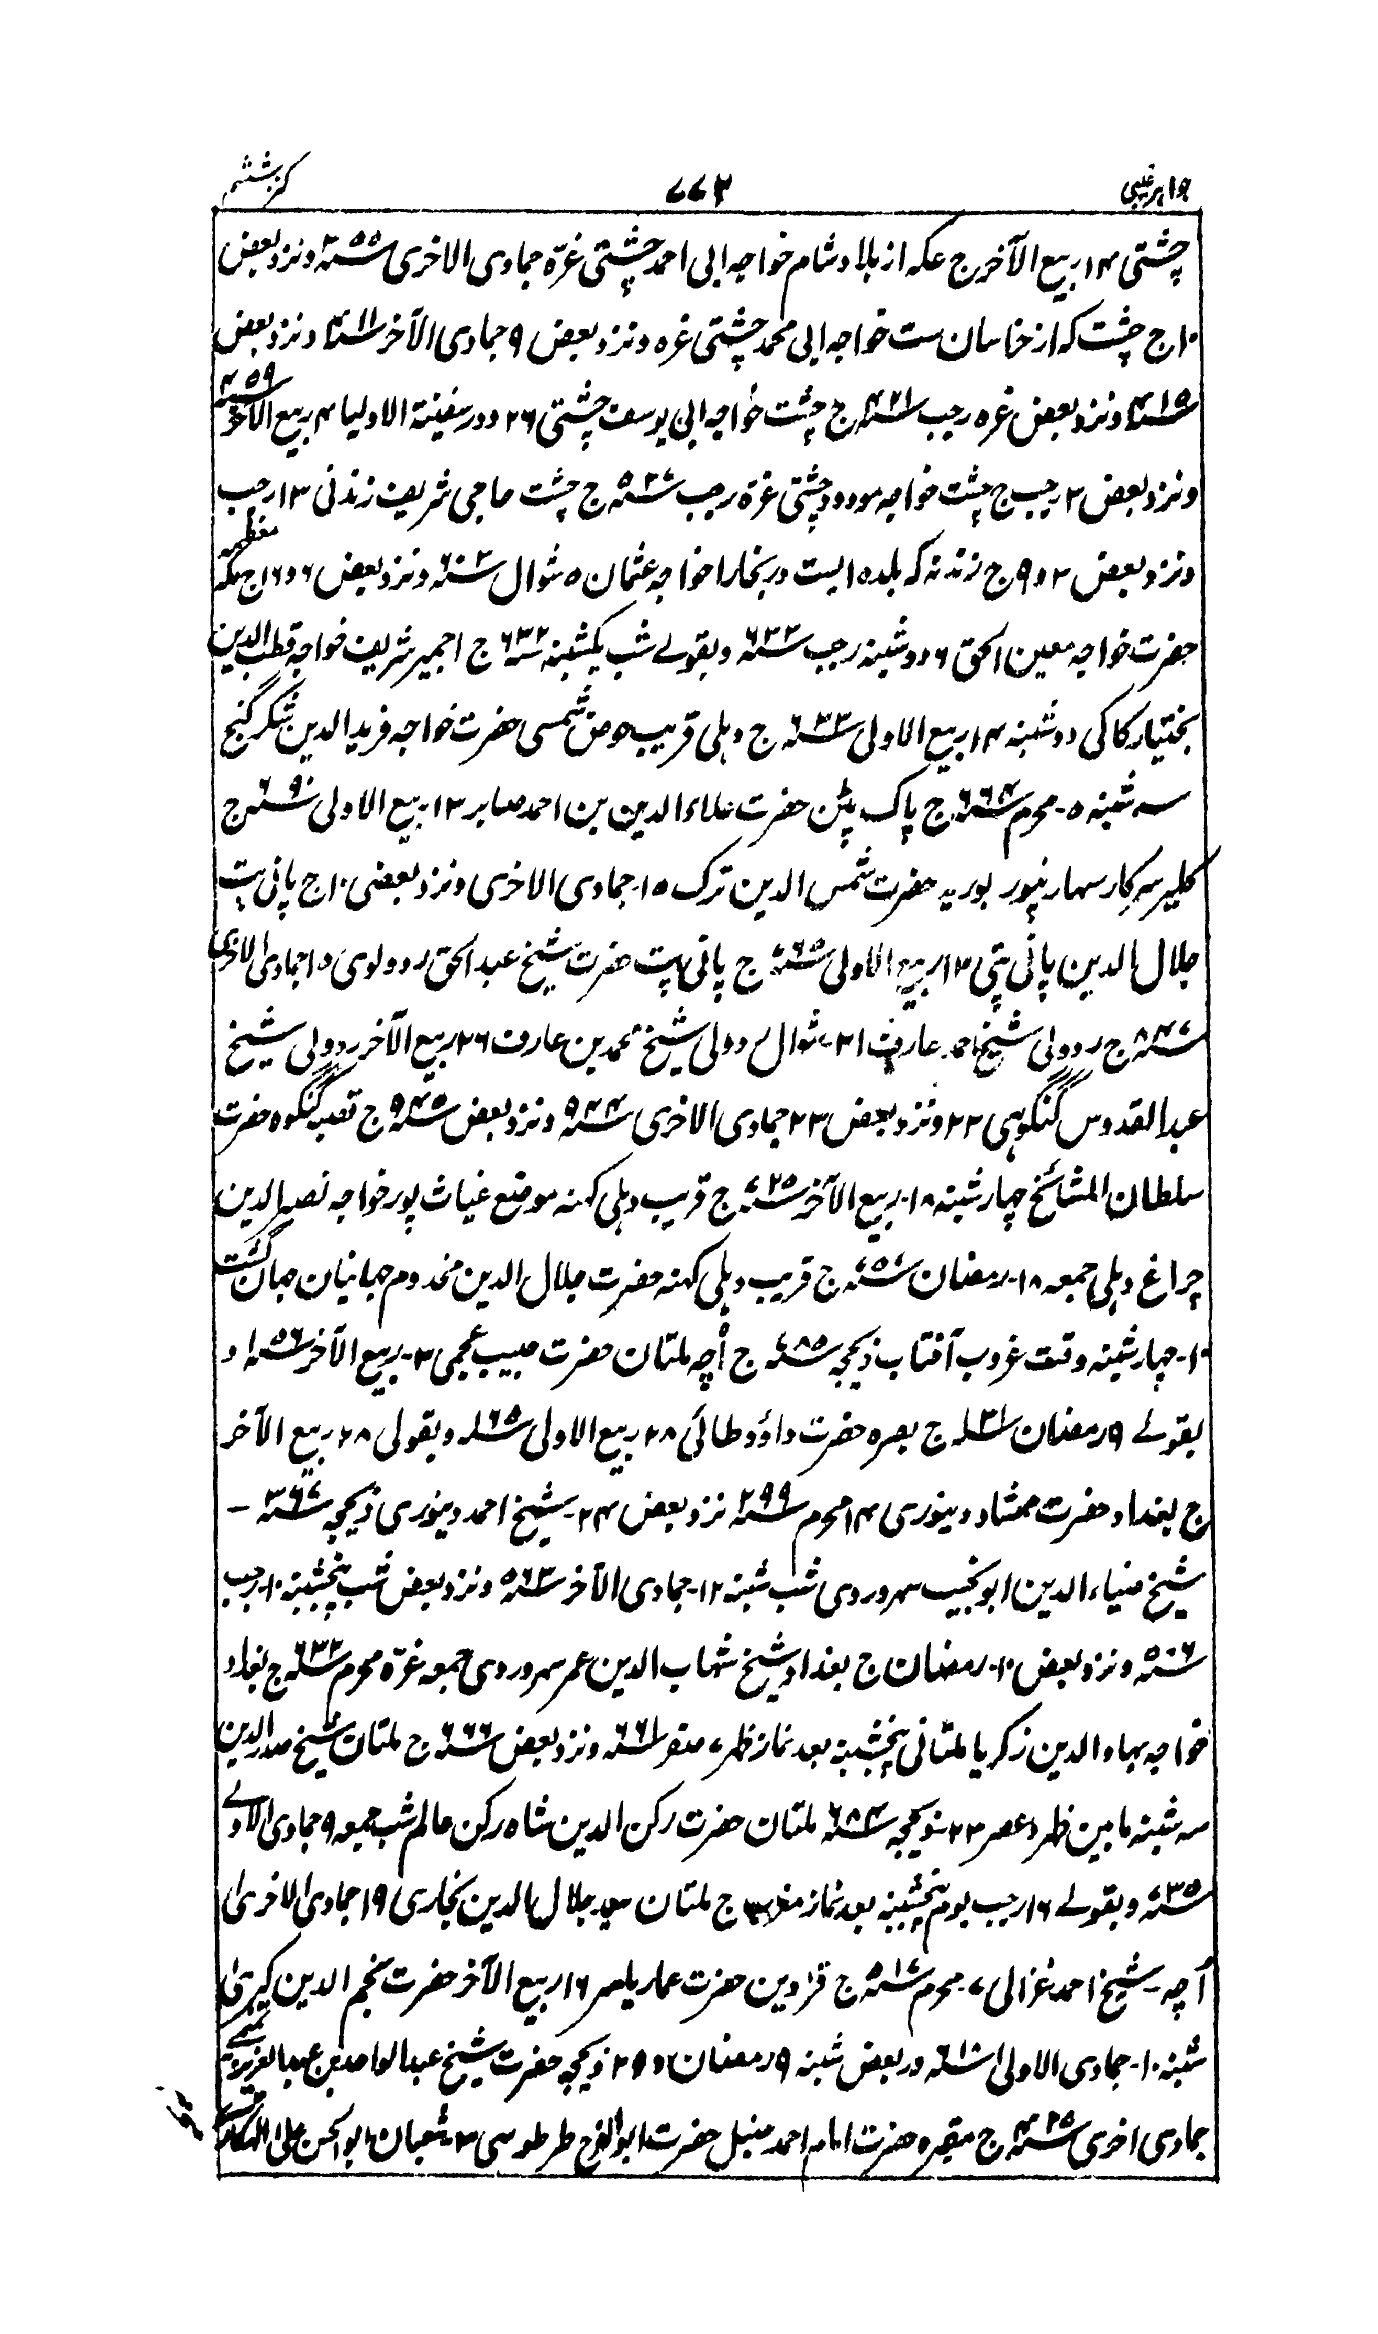 جواہر غیبی ۷۷۲ کنز ششم
چشتی ۱۴ ربیع الآخر ج عکہ از بلاد شام خواجہ ابی احمد چشتی غرّہ جمادی الاخری ۳۵۵ سنہ و نزد بعض
۱۰ ج چشت کہ از خراسان ست خواجہ ابی محمد چشتی غرہ و نزد بعض ۹ جمادی الآخر ۴۱۱ سنہ و نزد بعض
۴۱۵ سنہ و نزد بعض غرہ رجب ۴۲۱ سنہ ج چشت خواجہ ابی یوسف چشتی ۲۶ و در سفینۃ الاولیا ۴ ربیع الآخر ۴۵۹ سنہ
و نزد بعض ۳ رجب ج چشت خواجہ مودود چشتی غرّہ رجب ۵۲۷ سنہ ج چشت حاجی شریف زندنی ۱۳ رجب
و نزد بعض ۳ و ۹ ج زندنہ کہ بلدہ ایست در بخارا خواجہ عثمان ۵ شوال ۶۰۳ سنہ و نزد بعض ۶ و ۱۶ ج مکہ معظمہ
حضرت خواجہ معین الحق ۶ دوشنبہ رجب ۶۳۳ سنہ و بقولے شب یکشنبہ ۶۳۲ سنہ ج اجمیر شریف خواجہ قطب الدین
بختیار کاکی دوشنبہ ۱۴ ربیع الاولی ۶۳۳ سنہ ج دہلی قریب حوض شمسی حضرت خواجہ فرید الدین شکر گنج
سہ شنبہ ۵- محرم ۶۶۴ سنہ ج پاک پٹن حضرت علاء الدین بن احمد صابر ۱۳- ربیع الاولی ۶۹۰ سنہ ج
کلیر سرکار سہارنپور بوریہ حضرت شمس الدین ترک ۱۵- جمادی الاخری و نزد بعضی ۱۰ ج پانی پت
جلال الدین پانی پتی ۱۳ ربیع الاولی ۷۶۵ سنہ ج پانی پت حضرت شیخ عبد الحق ردولوی ۱۵ جمادی الاخری
۸۳۷ سنہ ج ردولی شیخ احمد عارف ۲۱- شوال ردولی شیخ محمد بن عارف ۲۶ ربیع الآخر ردولی شیخ
عبد القدوس گنگوہی ۲۲ و نزد بعض ۲۳ جمادی الاخری ۹۴۴ سنہ و نزد بعض ۹۴۵ سنہ ج قصبہ گنگوہ حضرت
سلطان المشائخ چہار شنبہ ۱۸- ربیع الآخر ۷۲۵ سنہ ج قریب دہلی کہنہ موضع غیاث پور خواجہ نصیر الدین
چراغ دہلی جمعہ ۱۸- رمضان ۷۵۷ سنہ ج قریب دہلی کہنہ حضرت جلال الدین مخدوم جہانیان جہان گشت
۱۰- چہار شنبہ وقت غروب آفتاب ذیحجہ ۷۸۵ سنہ ج اُچہ ملتان حضرت حبیب عجمی ۳- ربیع الآخر ۱۵۶ سنہ و
بقولے ۹ رمضان ۱۳۱ سنہ ج بصرہ حضرت داؤد طائی ۲۸ ربیع الاولی ۱۶۵ سنہ و بقولی ۲۸ ربیع الآخر
ج بغداد حضرت ممشاد دینوری ۱۴ محرم ۲۹۹ سنہ نزد بعض ۲۴- شیخ احمد دینوری ذیحجہ ۳۶۷ سنہ -
شیخ ضیاء الدین ابو نجیب سہروردی شب شنبہ ۱۲- جمادی الآخر ۵۶۳ سنہ و نزد بعض شب پنجشنبہ ۱۰- رجب
۵۰۶ سنہ و نزد بعض ۱۰- رمضان ج بغداد شیخ شہاب الدین عمر سہروردی جمعہ غرّہ محرم ۶۳۲ سنہ ج بغداد
خواجہ بہاء الدین زکریا ملتانی پنجشنبہ بعد نماز ظہر ۷ صفر ۶۶۱ سنہ و نزد بعض ۶۶۶ سنہ ج ملتان شیخ صدر الدین
سہ شنبہ ما بین ظہر و عصر ۲۳ ذیحجہ ۶۸۴ سنہ ملتان حضرت رکن الدین شاہ رکن عالم شب جمعہ ۹ جمادی الاولے
۷۳۵ سنہ و بقولے ۱۶ رجب یوم پنجشنبہ بعد نماز مغرب ج ملتان سید جلال الدین بخاری ۱۹ جمادی الاخری
اُچہ- شیخ احمد غزالی ۷- محرم ۵۱۷ سنہ ج قزوین حضرت عمار یاسر ۱۶ ربیع الآخر حضرت نجم الدین کبریٰ
شنبہ ۱۰- جمادی الاولی ۶۱۸ سنہ و در بعض شنبہ ۹ رمضان و ۲۹ ذیحجہ حضرت شیخ عبد الواحد بن عبد العزیز تمیمی
جمادی اخری ۴۲۵ سنہ ج مقبرہ حضرت امام احمد حنبل حضرت ابو الفرح طرطوسی ۳- شعبان ابو الحسن علی الہکاری